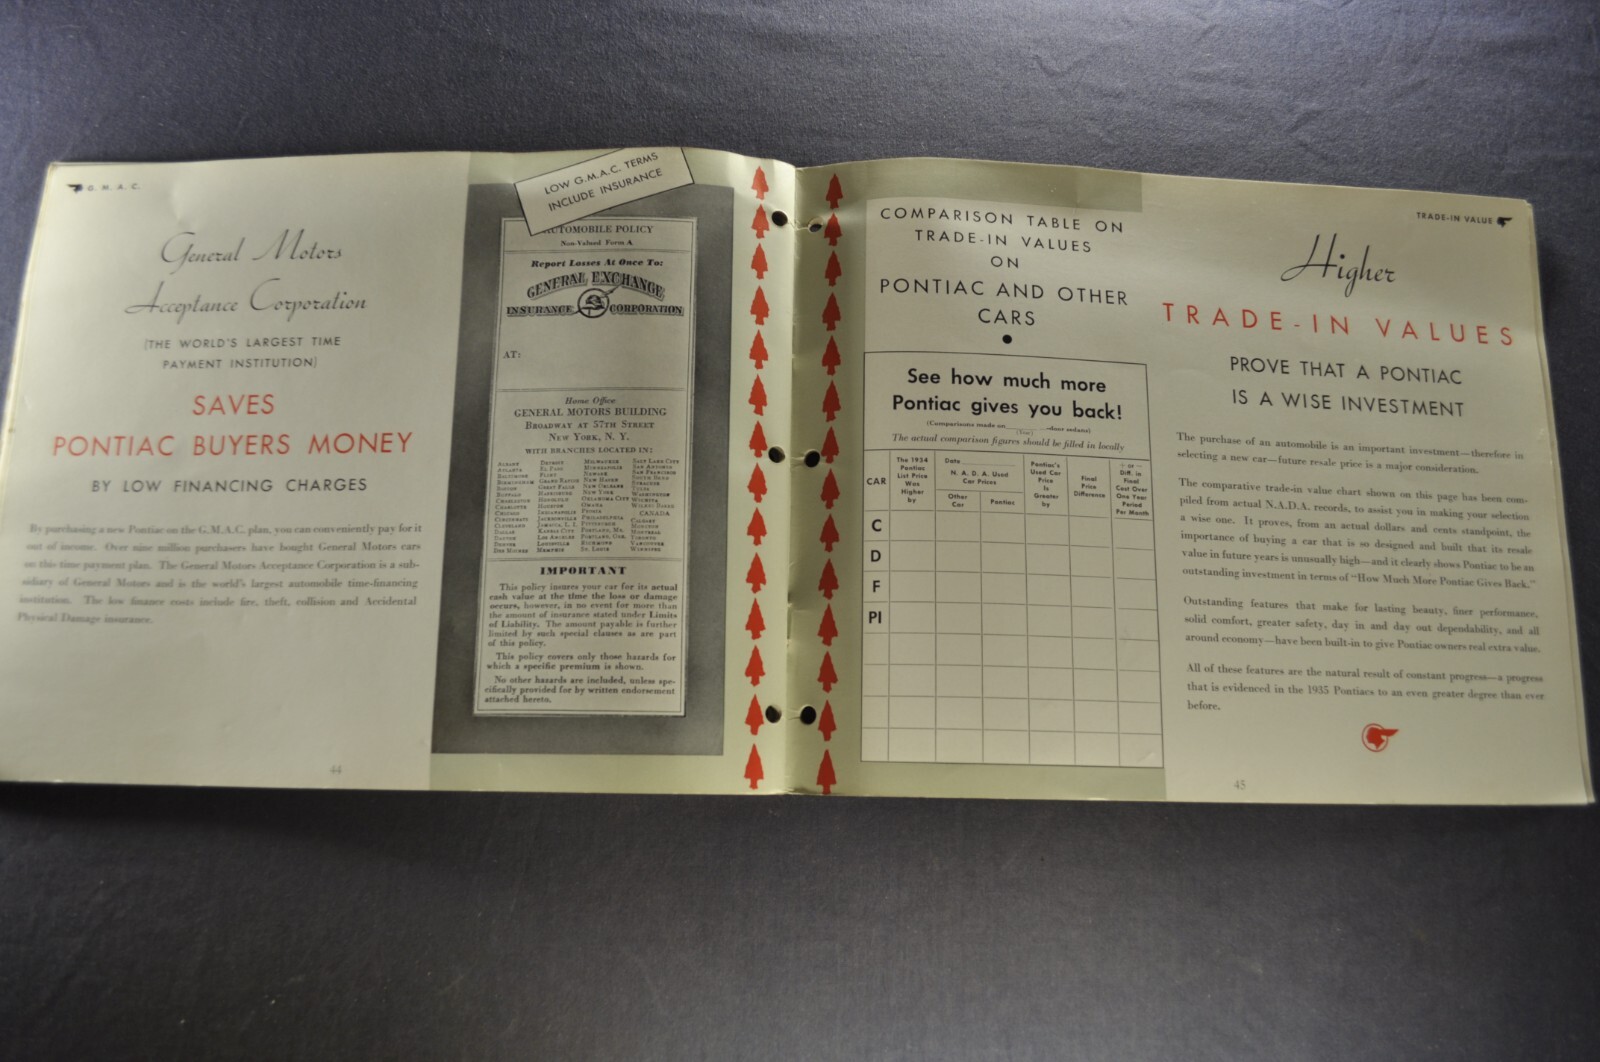 G. M. A. C.
General Motors
Acceptance Corporation
(THE WORLD'S LARGEST TIME
PAYMENT INSTITUTION)
SAVES
PONTIAC BUYERS MONEY
BY LOW FINANCING CHARGES
By purchasing a new Pontiac on the G.M.A.C. plan, you can conveniently pay for it
out of income. Over nine million purchasers have bought General Motors cars
on this time payment plan. The General Motors Acceptance Corporation is a sub-
sidiary of General Motors and is the world's largest automobile time-financing
institution. The low finance costs include fire, theft, collision and Accidental
Physical Damage insurance.
44
LOW G.M.A.C. TERMS
INCLUDE INSURANCE
AUTOMOBILE POLICY
Non-Valued Form A
Report Losses At Once To:
GENERAL EXCHANGE
INSURANCE CORPORATION
AT:
Home Office
GENERAL MOTORS BUILDING
BROADWAY AT 57TH STREET
NEW YORK, N. Y.
WITH BRANCHES LOCATED IN:
IMPORTANT
This policy insures your car for its actual
cash value at the time the loss or damage
occurs, however, in no event for more than
the amount of insurance stated under Limits
of Liability. The amount payable is further
limited by such special clauses as are part
of this policy.
This policy covers only those hazards for
which a specific premium is shown.
No other hazards are included, unless spe-
cifically provided for by written endorsement
attached hereto.
COMPARISON TABLE ON
TRADE-IN VALUES
ON
PONTIAC AND OTHER
CARS
See how much more
Pontiac gives you back!
(Comparisons made on -door sedans)
(Year)
The actual comparison figures should be filled in locally
CAR
The 1934
Pontiac
List Price
Was
Higher
by
Date
N. A. D. A. Used
Car Prices
Other
Car
Pontiac
Pontiac's
Used Car
Price
Is
Greater
by
Final
Price
Difference
+ or −
Diff. in
Final
Cost Over
One Year
Period
Per Month
C
D
F
PI
TRADE-IN VALUE
Higher
TRADE-IN VALUES
PROVE THAT A PONTIAC
IS A WISE INVESTMENT
The purchase of an automobile is an important investment—therefore in
selecting a new car—future resale price is a major consideration.
The comparative trade-in value chart shown on this page has been com-
piled from actual N.A.D.A. records, to assist you in making your selection
a wise one. It proves, from an actual dollars and cents standpoint, the
importance of buying a car that is so designed and built that its resale
value in future years is unusually high—and it clearly shows Pontiac to be an
outstanding investment in terms of "How Much More Pontiac Gives Back."
Outstanding features that make for lasting beauty, finer performance,
solid comfort, greater safety, day in and day out dependability, and all
around economy—have been built-in to give Pontiac owners real extra value.
All of these features are the natural result of constant progress—a progress
that is evidenced in the 1935 Pontiacs to an even greater degree than ever
before.
45